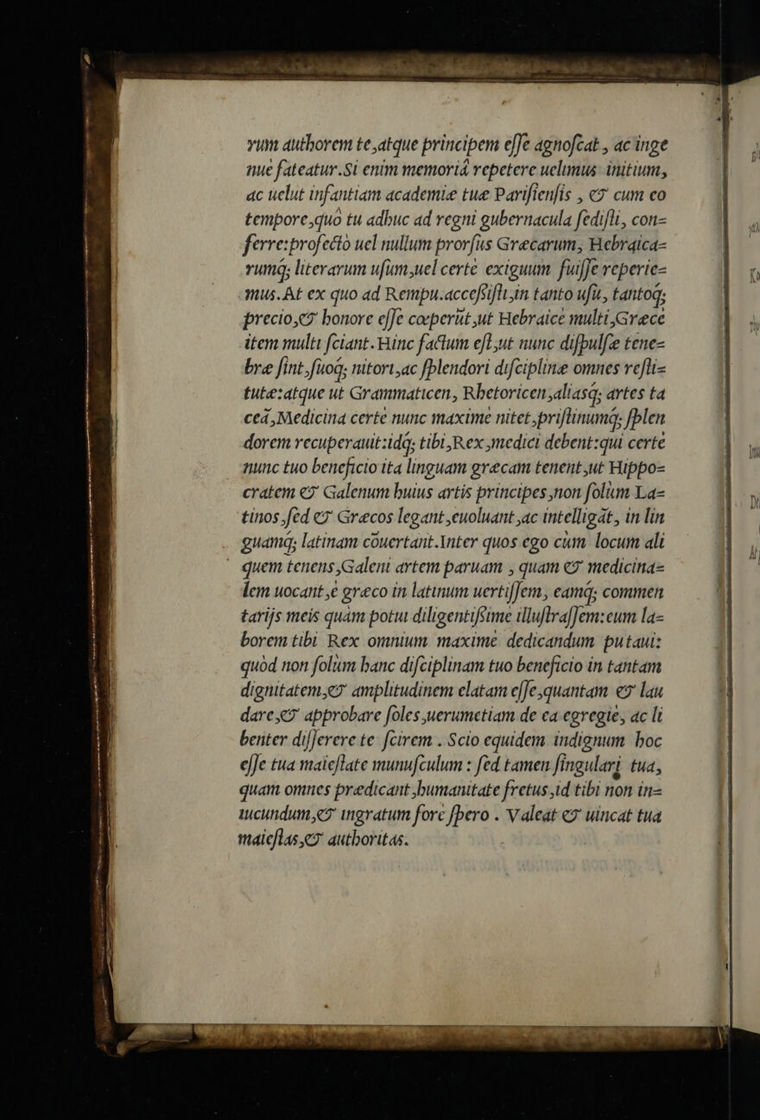 rum authorem te,atque principem eſſe agnoſcat , ac inge
nue fateatur.Si enim memoriã repetere uelimus initium,
ac uelut infantiam academiæ tuæ Pariſienſis , & cum eo
tempore,quo tu adhuc ad regni gubernacula ſediſti, con=
ferre:profectò uel nullum prorſus Græcarum, Hebraica=
rumq; literarum uſum,uel certè exiguum fuiſſe reperie=
mus.At ex quo ad Rempu.acceſsiſti,in tanto uſu, tantoq;
precio,& honore eſſe cœperũt,ut Hebraicè multi,Græcè
item multi ſciant.Hinc factum eſt,ut nunc diſpulſæ tene=
bræ ſint,ſuoq; nitori,ac ſplendori diſciplinæ omnes reſti=
tutæ:atque ut Grammaticen, Rhetoricen,aliasq; artes ta
ceã,Medicina certè nunc maximè nitet,priſtinumq; ſplen
dorem recuperauit:idq; tibi,Rex,medici debent:qui certè
nunc tuo beneficio ita linguam græcam tenent,ut Hippo=
cratem & Galenum huius artis principes,non ſolùm La=
tinos,ſed & Græcos legant,euoluant,ac intelligãt, in lin
guamq; latinam cõuertant.Inter quos ego cùm locum ali
quem tenens,Galeni artem paruam , quam & medicina=
lem uocant,è græco in latinum uertiſſem, eamq; commen
tarijs meis quàm potui diligentiſsimè illuſtraſſem:eum la=
borem tibi Rex omnium maximè dedicandum putaui:
quòd non ſolùm hanc diſciplinam tuo beneficio in tantam
dignitatem,& amplitudinem elatam eſſe,quantam & lau
dare,& approbare ſoles,uerumetiam de ea egregiè, ac li
benter diſſerere te ſcirem . Scio equidem indignum hoc
eſſe tua maieſtate munuſculum : ſed tamen ſingulari tua,
quam omnes prædicant,humanitate fretus,id tibi non in=
iucundum,& ingratum fore ſpero . Valeat & uincat tua
maieſtas,& authoritas.